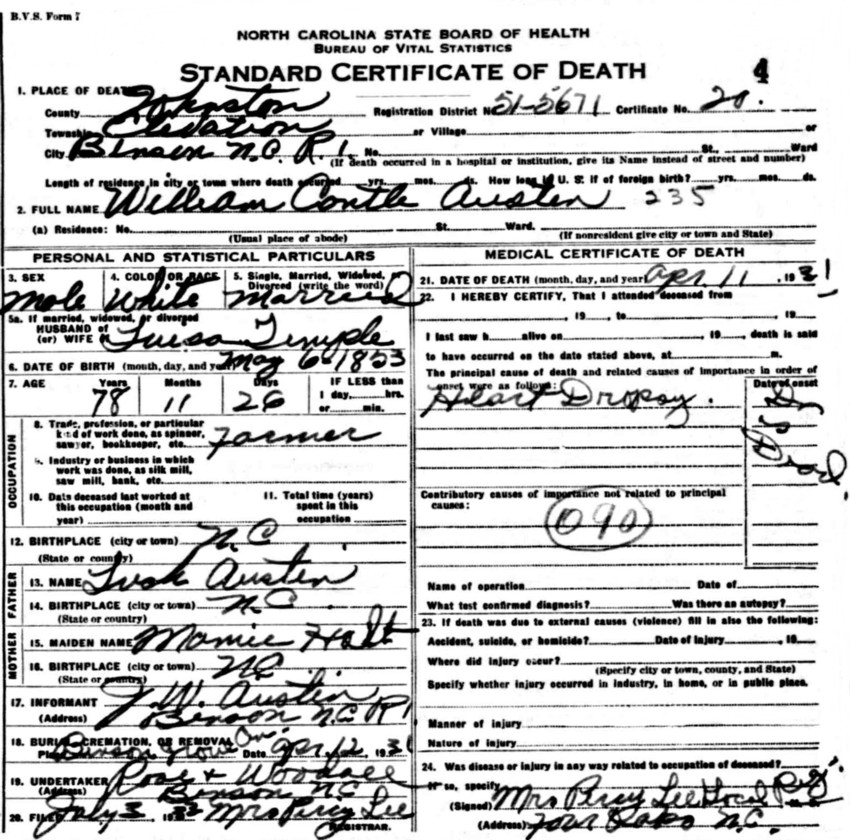 B.V.S. Form 7
NORTH CAROLINA STATE BOARD OF HEALTH
BUREAU OF VITAL STATISTICS
STANDARD CERTIFICATE OF DEATH 4
1. PLACE OF DEATH
County Johnston Registration District No 51-5671 Certificate No. 20.
Township Elevation or Village or
City Benson N.C. R1. No. St., Ward
(If death occurred in a hospital or institution, give its Name instead of street and number)
Length of residence in city or town where death occurred yrs. mos. ds. How long in U. S. if of foreign birth? yrs. mos. ds.
2. FULL NAME William Austen 235
(a) Residence: No. St. Ward.
(Usual place of abode) (If nonresident give city or town and State)
PERSONAL AND STATISTICAL PARTICULARS
3. SEX 4. COLOR OR RACE 5. Single, Married, Widowed, Divorced (write the word)
Male White Married
5a. If married, widowed, or divorced
HUSBAND of
(or) WIFE Temple
6. DATE OF BIRTH (month, day, and year) May 6-1853
7. AGE Years Months Days IF LESS than
1 day, hrs.
78 11 26 or min.
OCCUPATION
8. Trade, profession, or particular
kind of work done, as spinner,
sawyer, bookkeeper, etc. Farmer
9. Industry or business in which
work was done, as silk mill,
saw mill, bank, etc.
10. Date deceased last worked at
this occupation (month and
year)
11. Total time (years)
spent in this
occupation
12. BIRTHPLACE (city or town) N.C.
(State or country)
FATHER
13. NAME Austen
14. BIRTHPLACE (city or town) N.C.
(State or country)
MOTHER
15. MAIDEN NAME Mamie Holt
16. BIRTHPLACE (city or town) N.C.
(State or country)
17. INFORMANT J.W. Austin
(Address) Benson N.C. R1
18. BURIAL, CREMATION, OR REMOVAL
Date Apr. 12, 1931
19. UNDERTAKER Rose + Woodall
(Address) Benson N.C.
20. FILED July 3 1932 Mrs Percy Lee
REGISTRAR.
MEDICAL CERTIFICATE OF DEATH
21. DATE OF DEATH (month, day, and year) Apr. 11, 1931
22. I HEREBY CERTIFY, That I attended deceased from
, 19 , to , 19
I last saw h alive on , 19 , death is said
to have occurred on the date stated above, at m.
The principal cause of death and related causes of importance in order of
onset were as follows: Date of onset
Heart Dropsy. Dr is Dead.
Contributory causes of importance not related to principal
causes:
090
Name of operation Date of
What test confirmed diagnosis? Was there an autopsy?
23. If death was due to external causes (violence) fill in also the following:
Accident, suicide, or homicide? Date of injury , 19
Where did injury occur?
(Specify city or town, county, and State)
Specify whether injury occurred in industry, in home, or in public place.
Manner of injury
Nature of injury
24. Was disease or injury in any way related to occupation of deceased?
If so, specify
(Signed) Mrs Percy Lee Local Reg.
(Address) Four Oaks N.C.